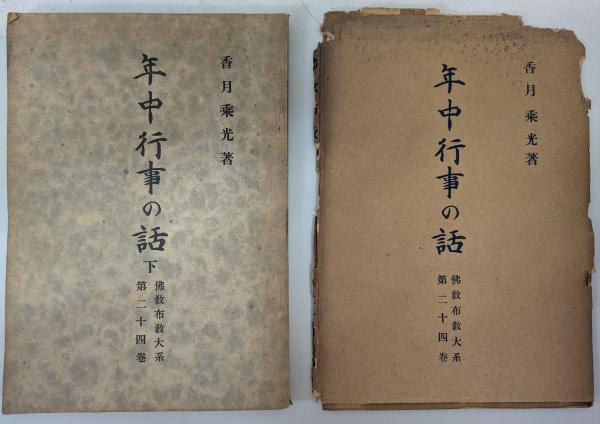 香月乘光著
年中行事の話
下
佛教布教大系
第二十四卷
香月乘光著
年中行事の話
佛教布教大系
第二十四卷